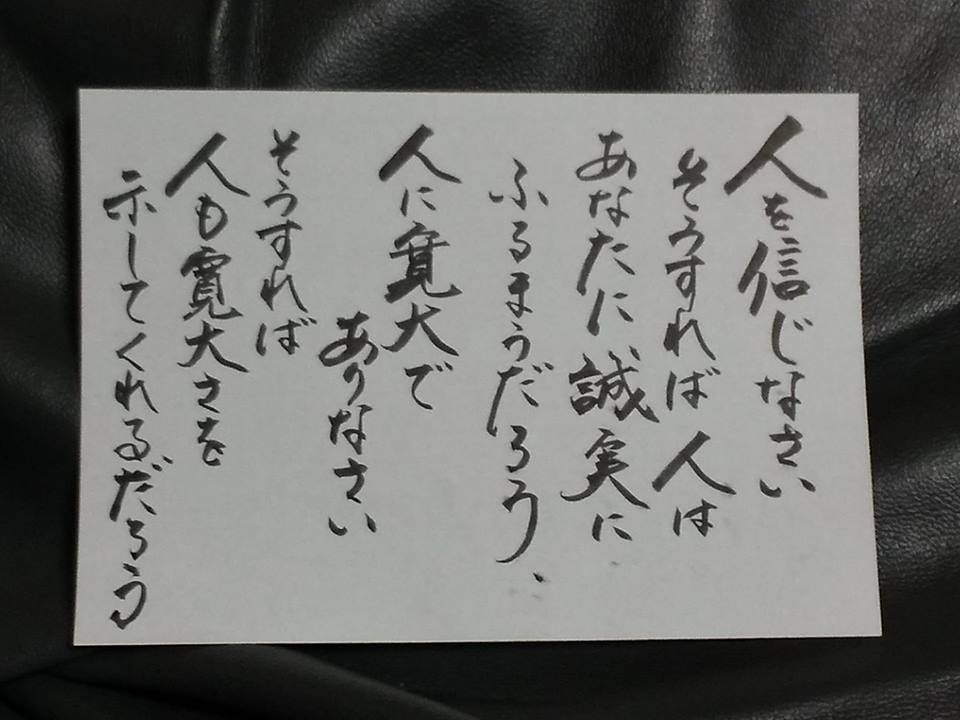 人を信じなさい
そうすれば人は
あなたに誠実に
ふるまうだろう、
人に寛大で
ありなさい
そうすれば
人も寛大さを
示してくれるだろう